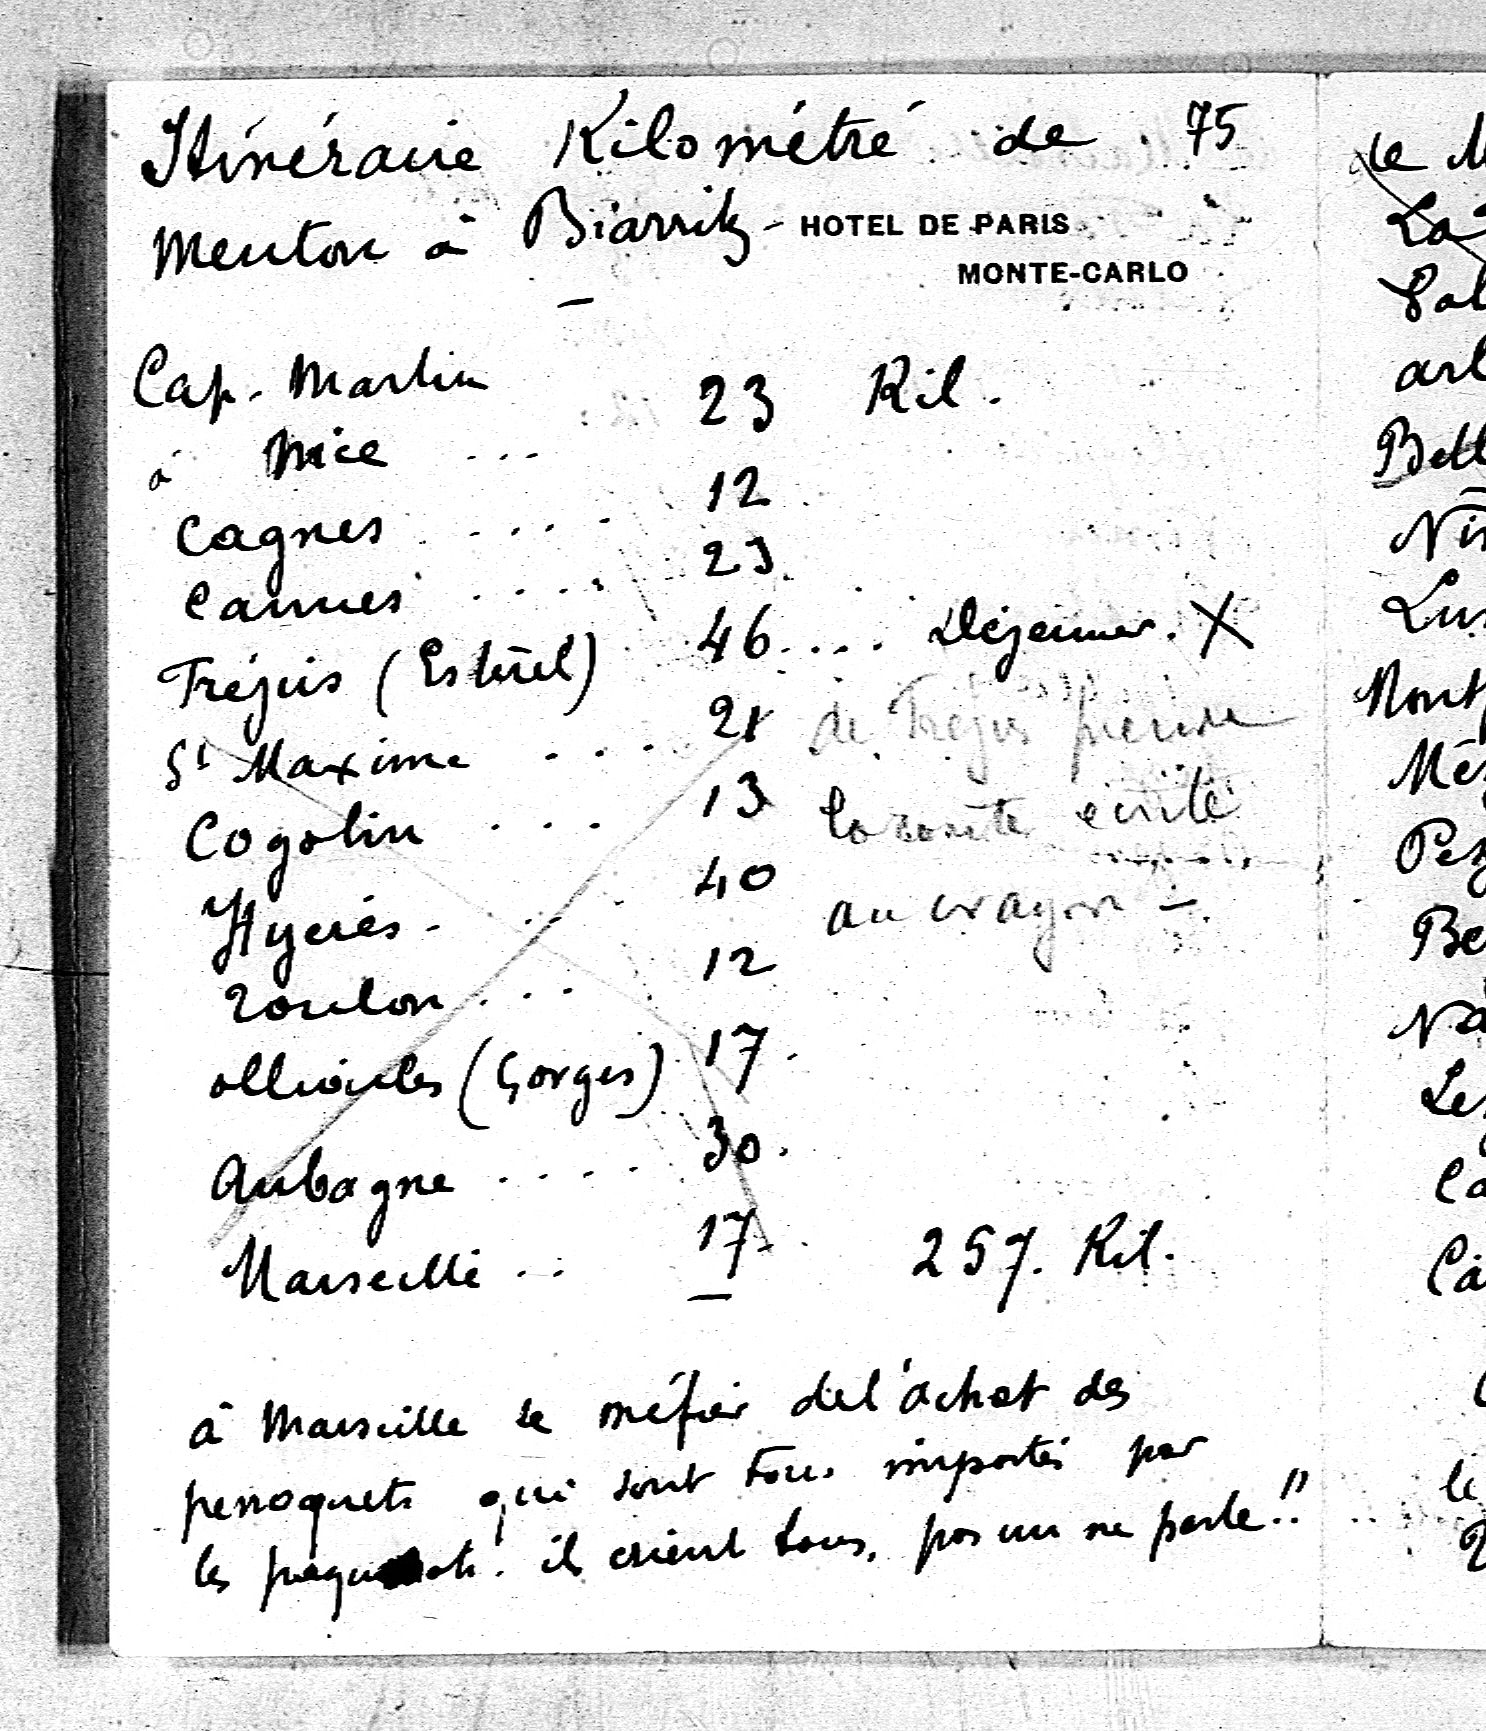 Itinéraire Kilométré de 75
Menton à Biarritz - HOTEL DE PARIS
MONTE-CARLO
Cap. Martin
à Nice ... 23 Kil.
Cagnes .... 12
Cannes .... 23
Fréjus (Estérel) 46 .... Déjeuner. X
St Maxime ... 21 de Fréjus prendre
Cogolin ... 13 la route
Hyères - ... 40 au crayon -
Toulon ... 12
Ollioules (Gorges) 17.
Aubagne .... 30.
Marseille .. 17. 257. Kil.
à Marseille se méfier de l'achat des
perroquets qui sont tous importés par
les paquebots. il crient tous, pas un ne parle!!
de
La
Sal
arl
Bell
Nî
Lun
Mont
Mèz
Pez
Be
Na
Le
Ca
Ca
le